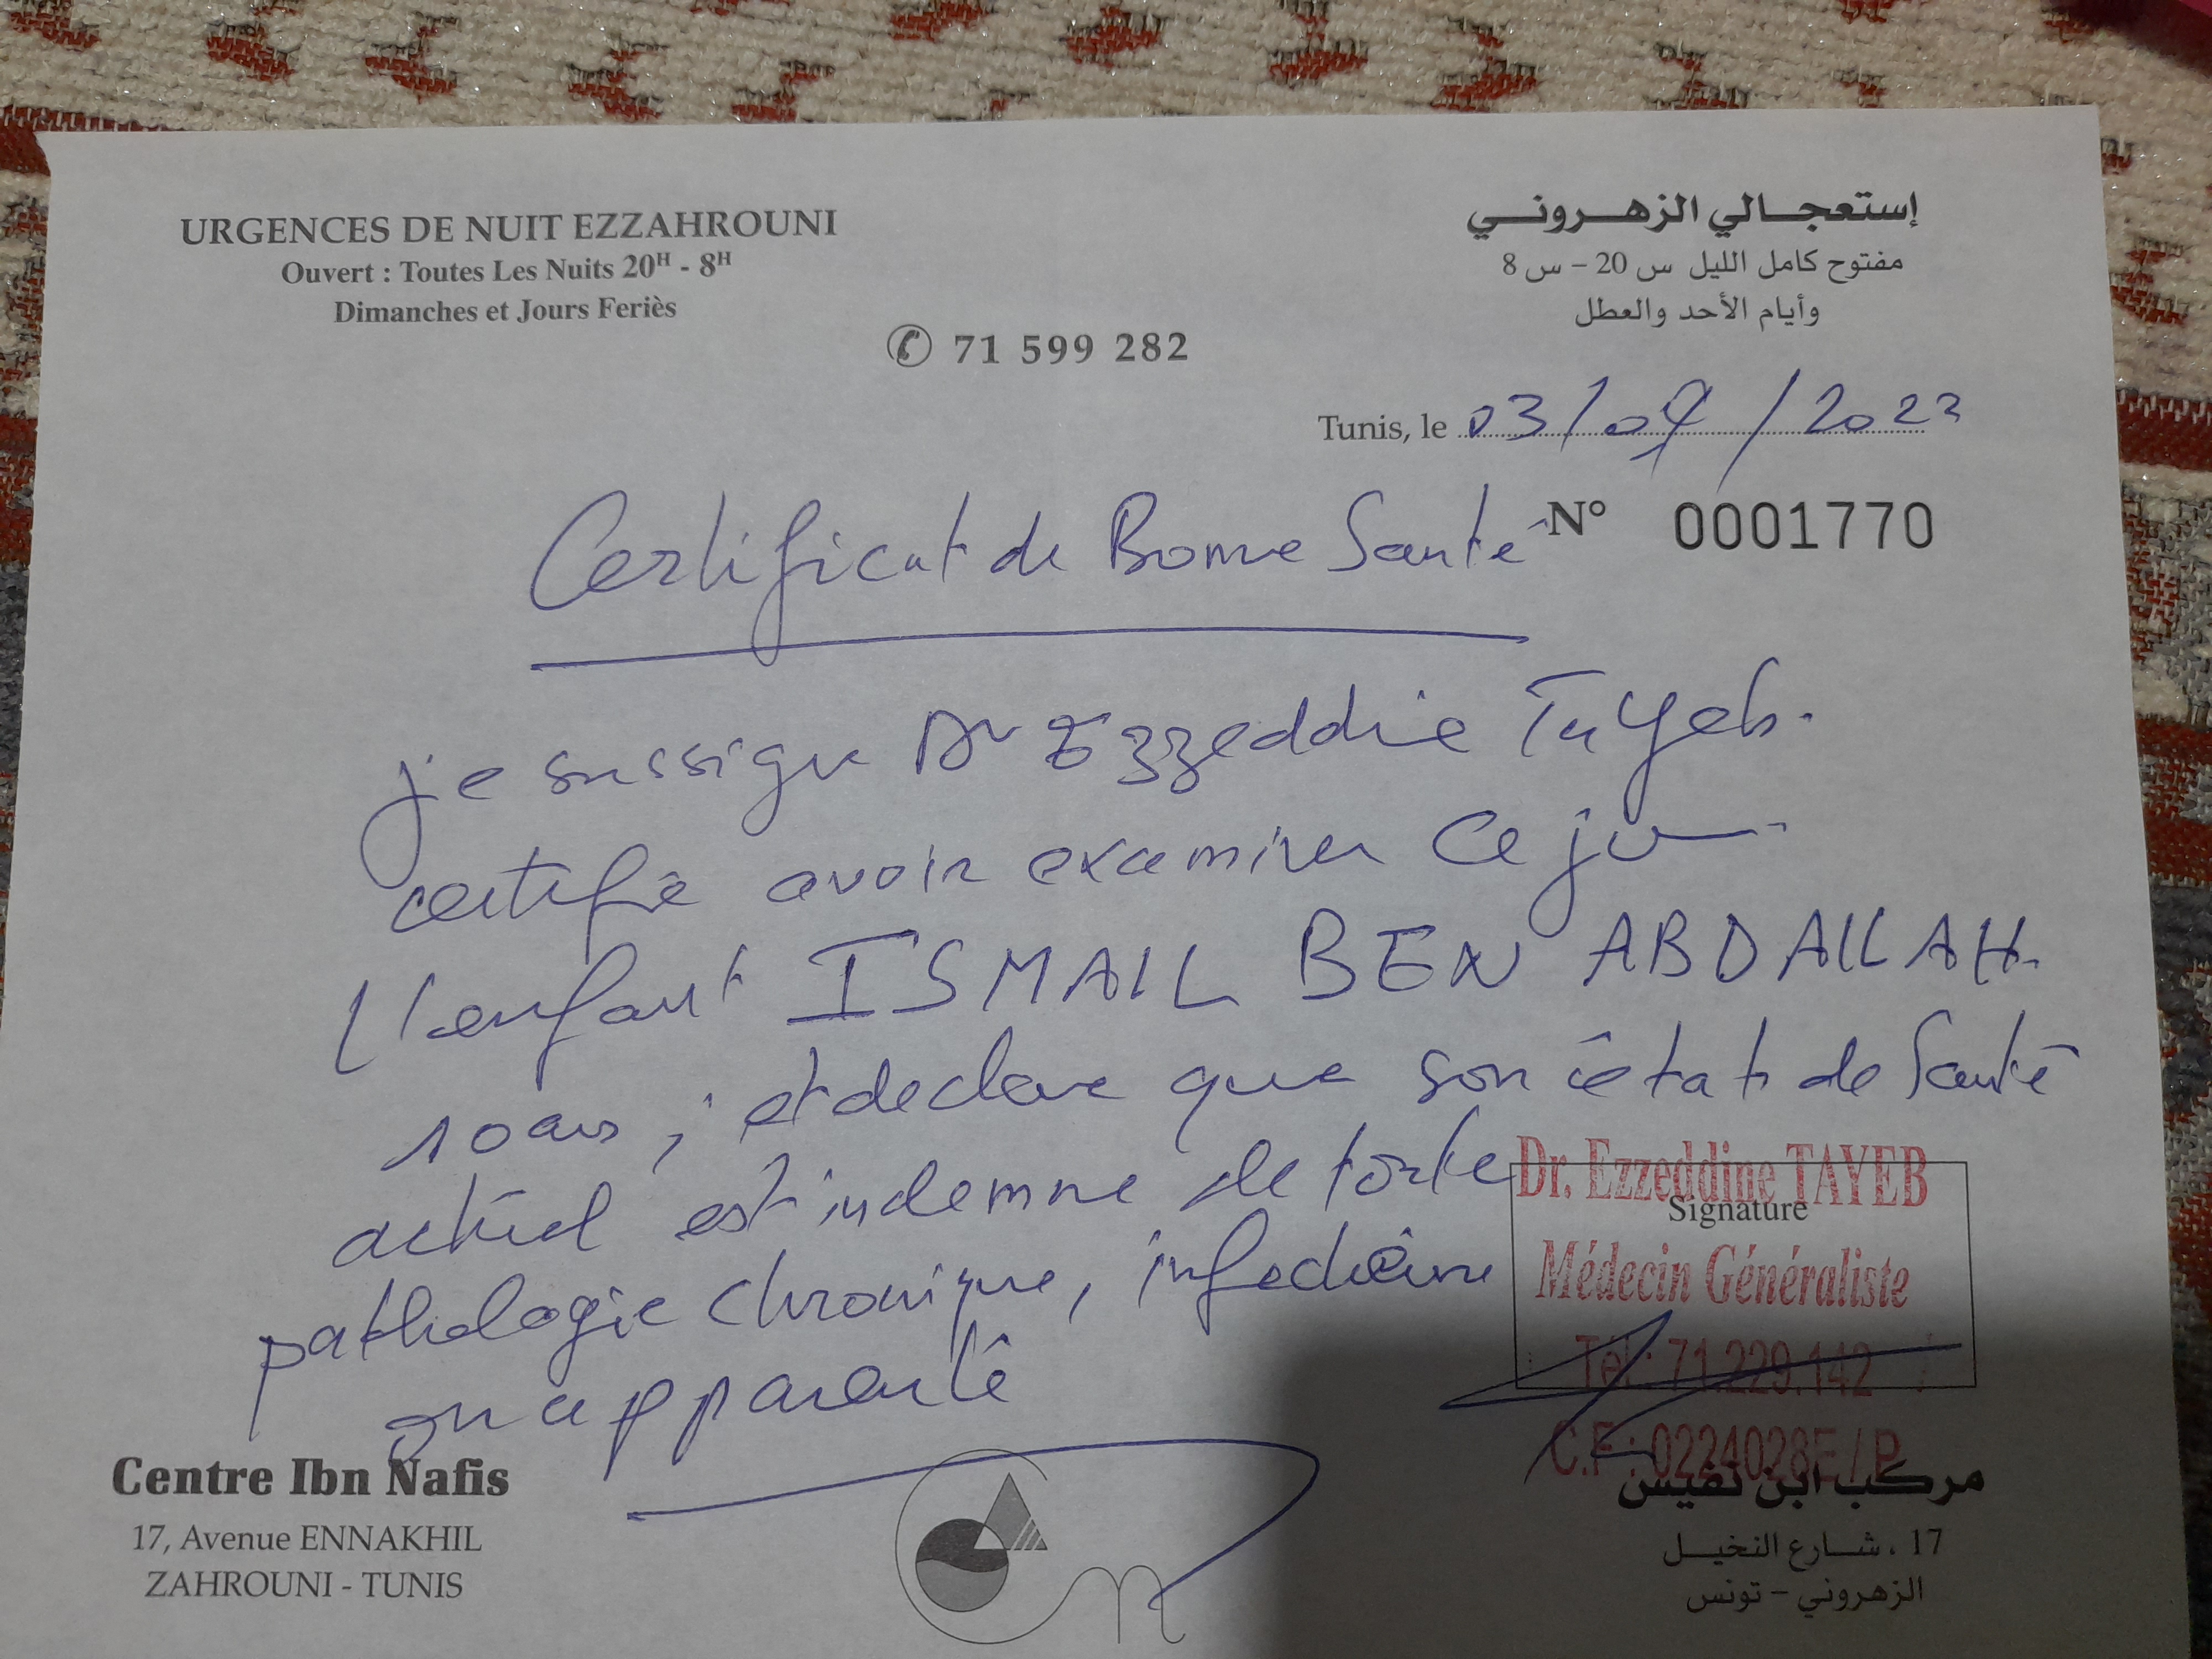 URGENCES DE NUIT EZZAHROUNI
Ouvert : Toutes Les Nuits 20H - 8H
Dimanches et Jours Feriès
إستعجالي الزهروني
مفتوح كامل الليل س 20 – س 8
وأيام الأحد والعطل
71 599 282
Tunis, le 03/07/2022
Certificat de Bonne Santé
N° 0001770
je sussigne Dr Ezzeddie Tayeb.
certifie avoir examiner ce jour
l'enfant ISMAIL BEN ABDALLAH.
10 ans, et declare que son état de Santé
actuel est indemne de toute
pathologie chronique, infectieuse
ou apparenté
Dr. Ezzeddine TAYEB
Signature
Médecin Généraliste
Tél : 71.229.142
C.F : 0224028E/P
Centre Ibn Nafis
17, Avenue ENNAKHIL
ZAHROUNI - TUNIS
مركب ابن نفيس
17 ، شارع النخيل
الزهروني – تونس